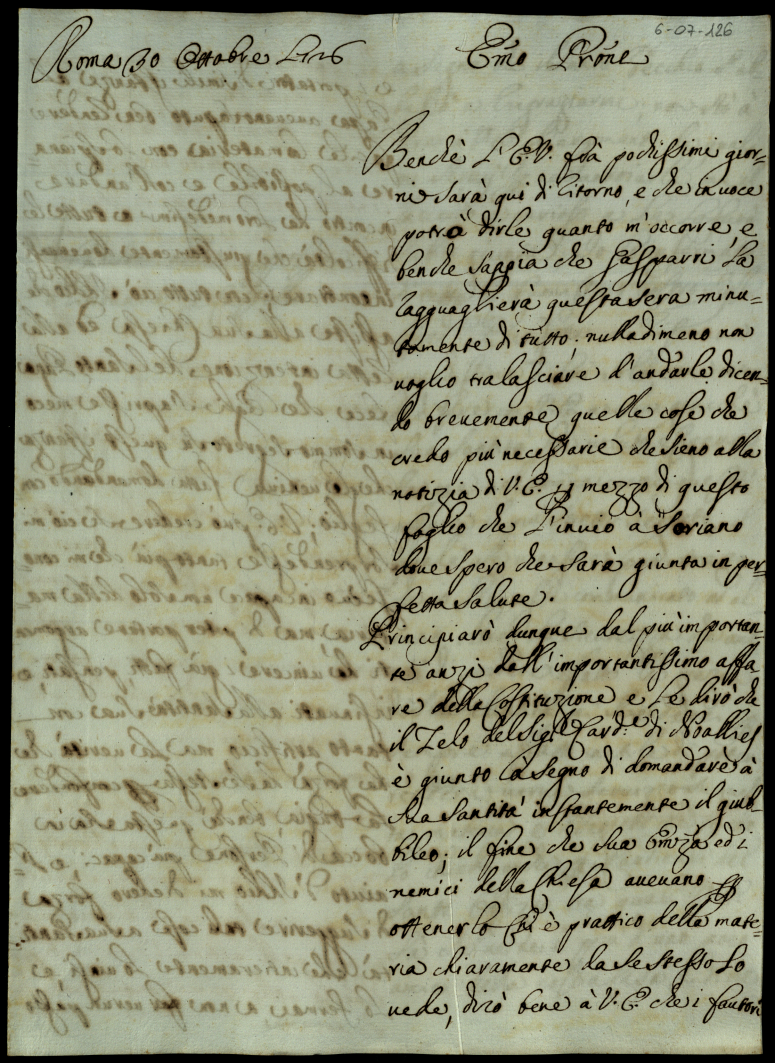 6-07-126
Roma 30 Ottobre 1726
Emo Prone
Benchè L'E.V. frà pochissimi gior=
ni sarà qui di ritorno, e che in voce
potrà dirle quanto m'occorre, e
benche sappia che Gasparri La
ragguaglierà questa sera minu=
tamente di tutto; nulladimeno non
voglio tralasciare d'andarle dicen=
do brevemente quelle cose che
credo più necessarie che sieno alla
notizia di V.E. p mezzo di questo
foglio che L'invio à Soriano
dove spero che sarà giunta in per=
fetta salute.
Principiarò dunque dal più importan=
te anzi dall'importantissimo affa
re della Costituzione e Le dirò che
il Zelo del Sigr Card.e di Noallies
è giunto à segno di domandare à
Sua Santità instantemente il giub=
bileo; il fine che sua Emza ed i
nemici della Chiesa avevano p
ottenerlo Chi è prattico della mate=
ria chiaramente da se stesso lo
vede, dirò bene à V.E. che i fautori